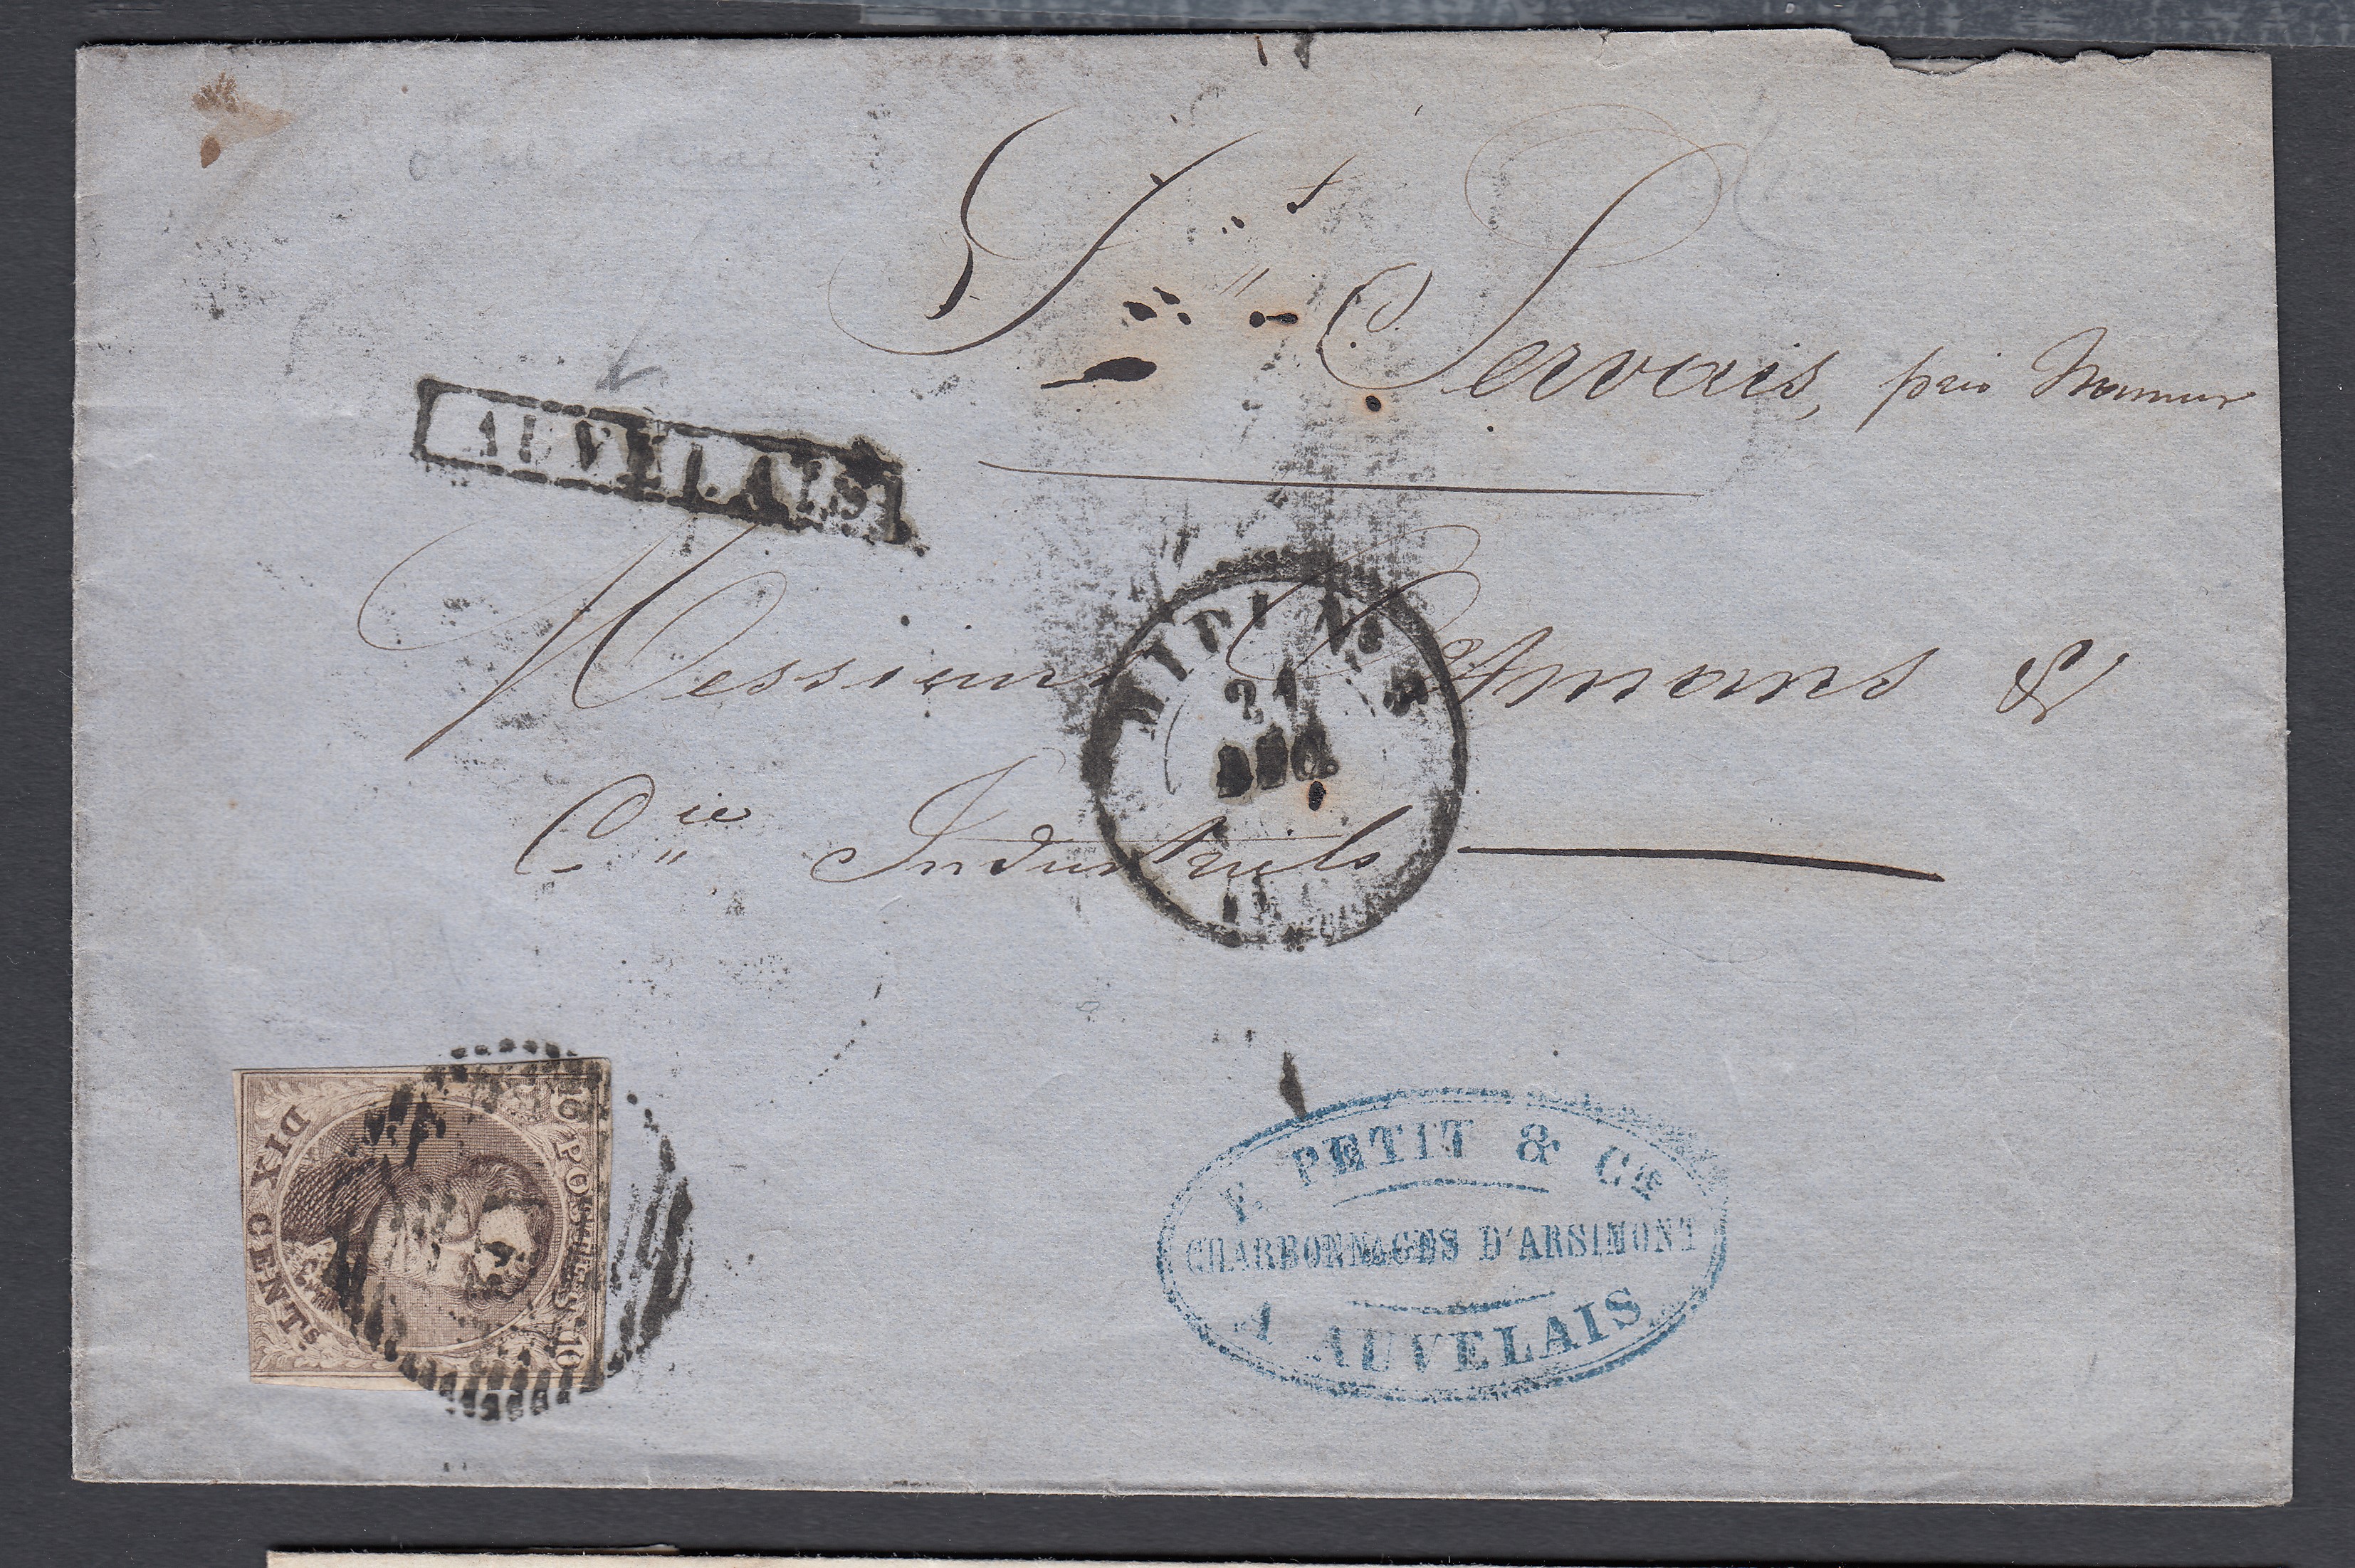 St Servais, près Namur
AUVELAIS
Messieurs &
Cie Industriels
21
DEC
10 POSTES 10
DIX CENTS
F. PETIT & CIE
CHARBONNAGES D'ARSIMONT
A AUVELAIS